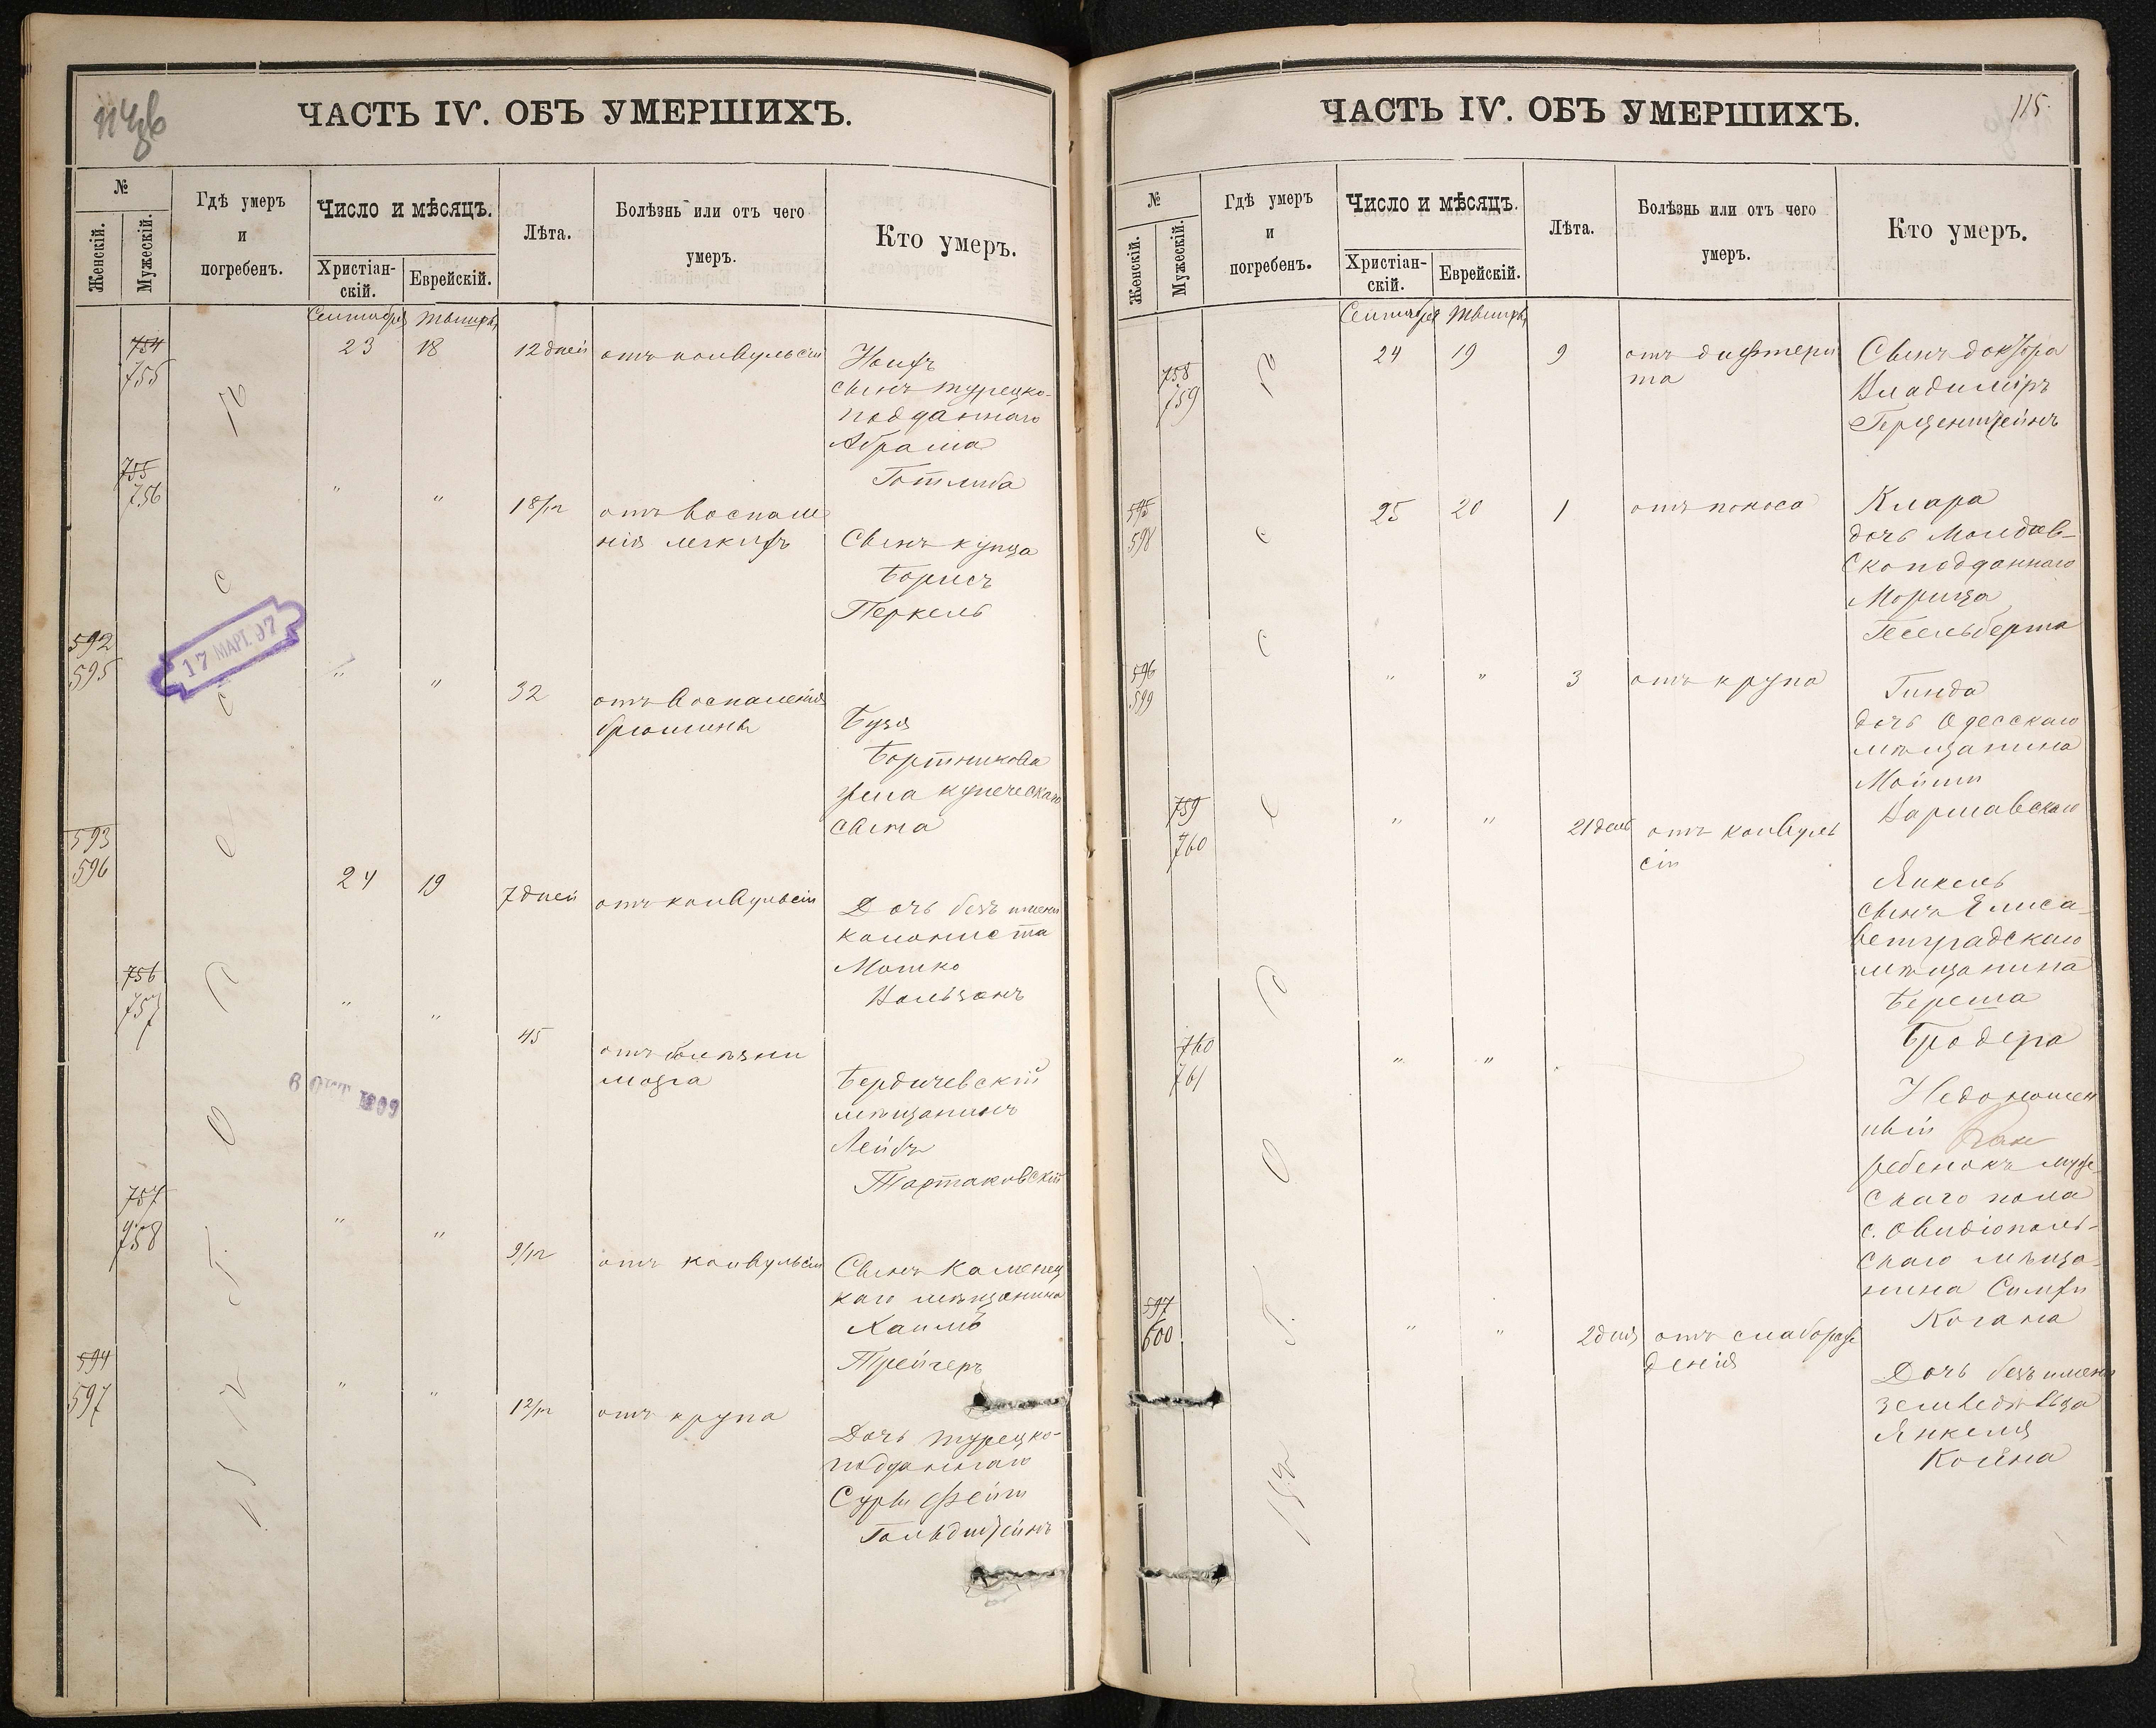 ЧАСТЬ IV. ОБЪ УМЕРШИХЪ.
№
Женскій.
Мужескій.
Гдѣ умеръ
и
погребенъ.
Число и мѣсяцъ.
Христіан-
скій.
Еврейскій.
Лѣта.
Болѣзнь или отъ чего
умеръ.
Кто умеръ.
Сентября
754
755
23
18
12 дней
отъ конвульсіи
сынъ турецко-
подданнаго
Абрама
Готлиба
755
756
"
"
18/12
отъ воспале
нія легкихъ
Сынъ купца
Борисъ
Перкель
592
595
17 МАРТ. 97
"
"
32
отъ воспаленія
брюшины
Бузя
Бортникова
жена купеческаго
сына
593
596
24
19
7 дней
отъ конвульсіи
Дочь безъ имени
колониста
Мошко
Вольсонъ
756
757
"
"
45
отъ болѣзни
мозга
Бердичевскій
мѣщанинъ
Лейбъ
Тартаковскій
6 ОКТ 1909
757
758
"
"
9/12
отъ конвульсіи
Сынъ Каменец
каго мѣщанина
Хаимъ
Трейгеръ
594
597
"
"
12/12
отъ крупа
Дочь турецко-
подданнаго
Сура Фейга
Гольдштейнъ
ЧАСТЬ IV. ОБЪ УМЕРШИХЪ.
115.
№
Женскій.
Мужескій.
Гдѣ умеръ
и
погребенъ.
Число и мѣсяцъ.
Христіан-
скій.
Еврейскій.
Лѣта.
Болѣзнь или отъ чего
умеръ.
Кто умеръ.
Сентября
758
759
24
19
9
отъ дифтери
та
Сынъ доктора
Владиміръ
Герценштейнъ
595
598
25
20
1
отъ поноса
Клара
дочь Молдав-
скоподданнаго
Морица
Гесельберга
596
599
"
"
3
отъ крупа
Гинда
дочь Одесскаго
мѣщанина
Варшавскаго
759
760
"
"
21 день
отъ конвуль
сіи
Янкель
сынъ Елиса-
ветградскаго
мѣщанина
Береша
Бродера
760
761
"
"
Недоношен
ный
ребенокъ муже
скаго пола
с. Овидіополь-
скаго мѣща-
нина Симхи
Когана
597
600
"
"
2 дня
отъ слаборож
денія
Дочь безъ имени
земледѣльца
Янкеля
Койна